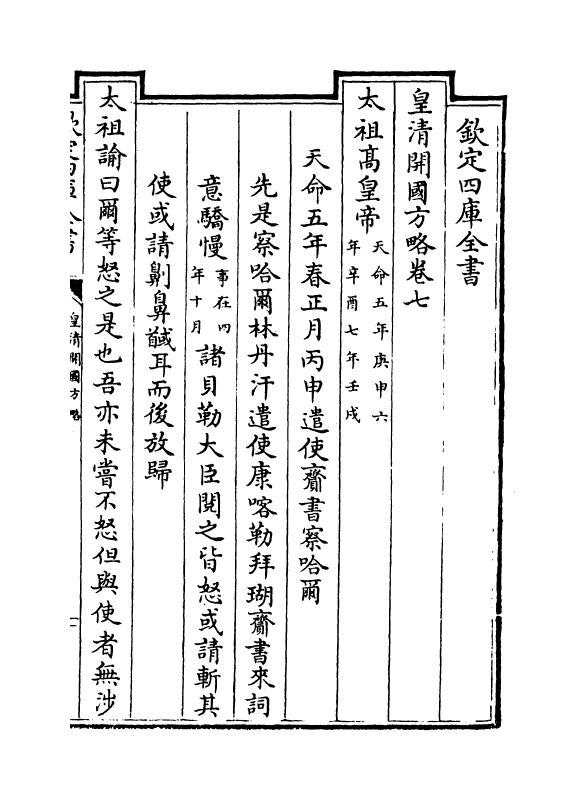 欽定四庫全書
皇清開國方略卷七
太祖髙皇帝天命五年庚申六
年辛酉七年壬戌
天命五年春正月丙申遣使齎書察哈爾
先是察哈爾林丹汗遣使康喀勒拜瑚齎書來詞
意驕慢事在四
年十月諸貝勒大臣閱之皆怒或請斬其
使或請劓鼻馘耳而後放歸
太祖諭曰爾等怒之是也吾亦未嘗不怒但與使者無涉
欽定四庫全書
皇清開國方略
一